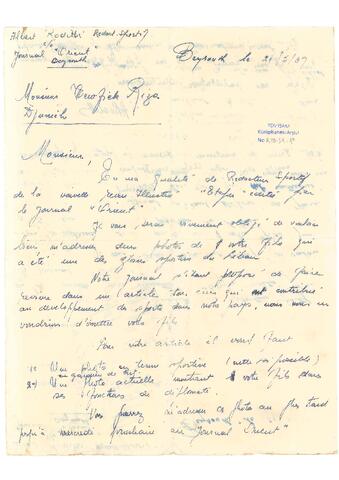 Albert Rédact. Sportif
c/o
Journal "Orient"
Beyrouth
Beyrouth le 21/5/
Monsieur Riza
Djounieh
TÜV
Kütüphanesi Arşivi
No
Monsieur,
En ma qualité de Rédacteur Sportif
de la nouvelle revue illustrée par
le journal "Orient"
Je vous serai vivement obligé de vouloir
bien m'adresser deux photos de votre fils qui
a été une des gloires sportives du Liban
Notre journal s'étant proposé de faire
dans un article tous ceux qui ont contribué
au développement du sports dans notre pays, nous nous en
voudrions d'omettre votre fils
Pour cet article il vous faut
1°) Une photo en tenue sportive (nette si possible)
2°) Une photo actuelle montrant votre fils dans
ses fonctions de diplomate.
Vous pouvez m'adresser photo au plus tard
jusqu'à mercredi prochain au Journal "Orient"